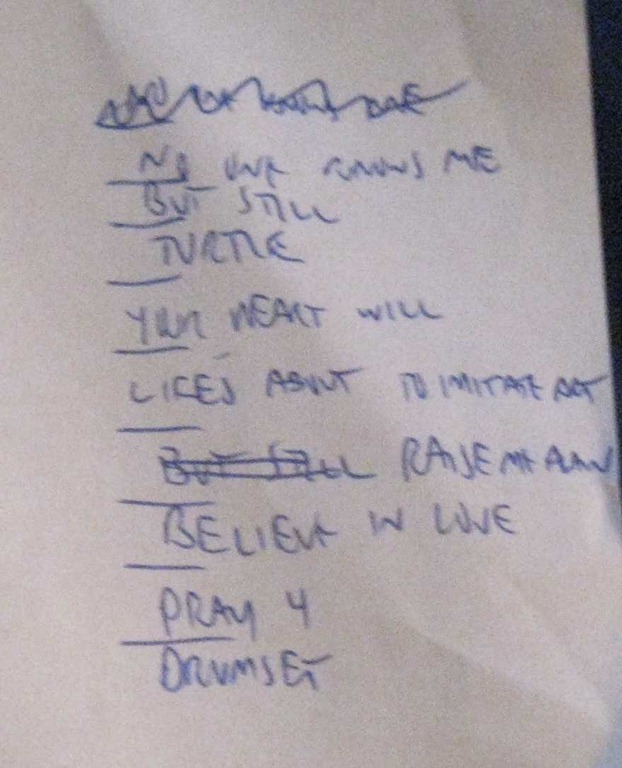 NO ONE KNOWS ME
BUT STILL
TURTLE
YOUR HEART WILL
LIFES ABOUT TO IMITATE ART
BUT STILL RAISE ME
BELIEVE IN LOVE
PRAY 4
DRUMSET